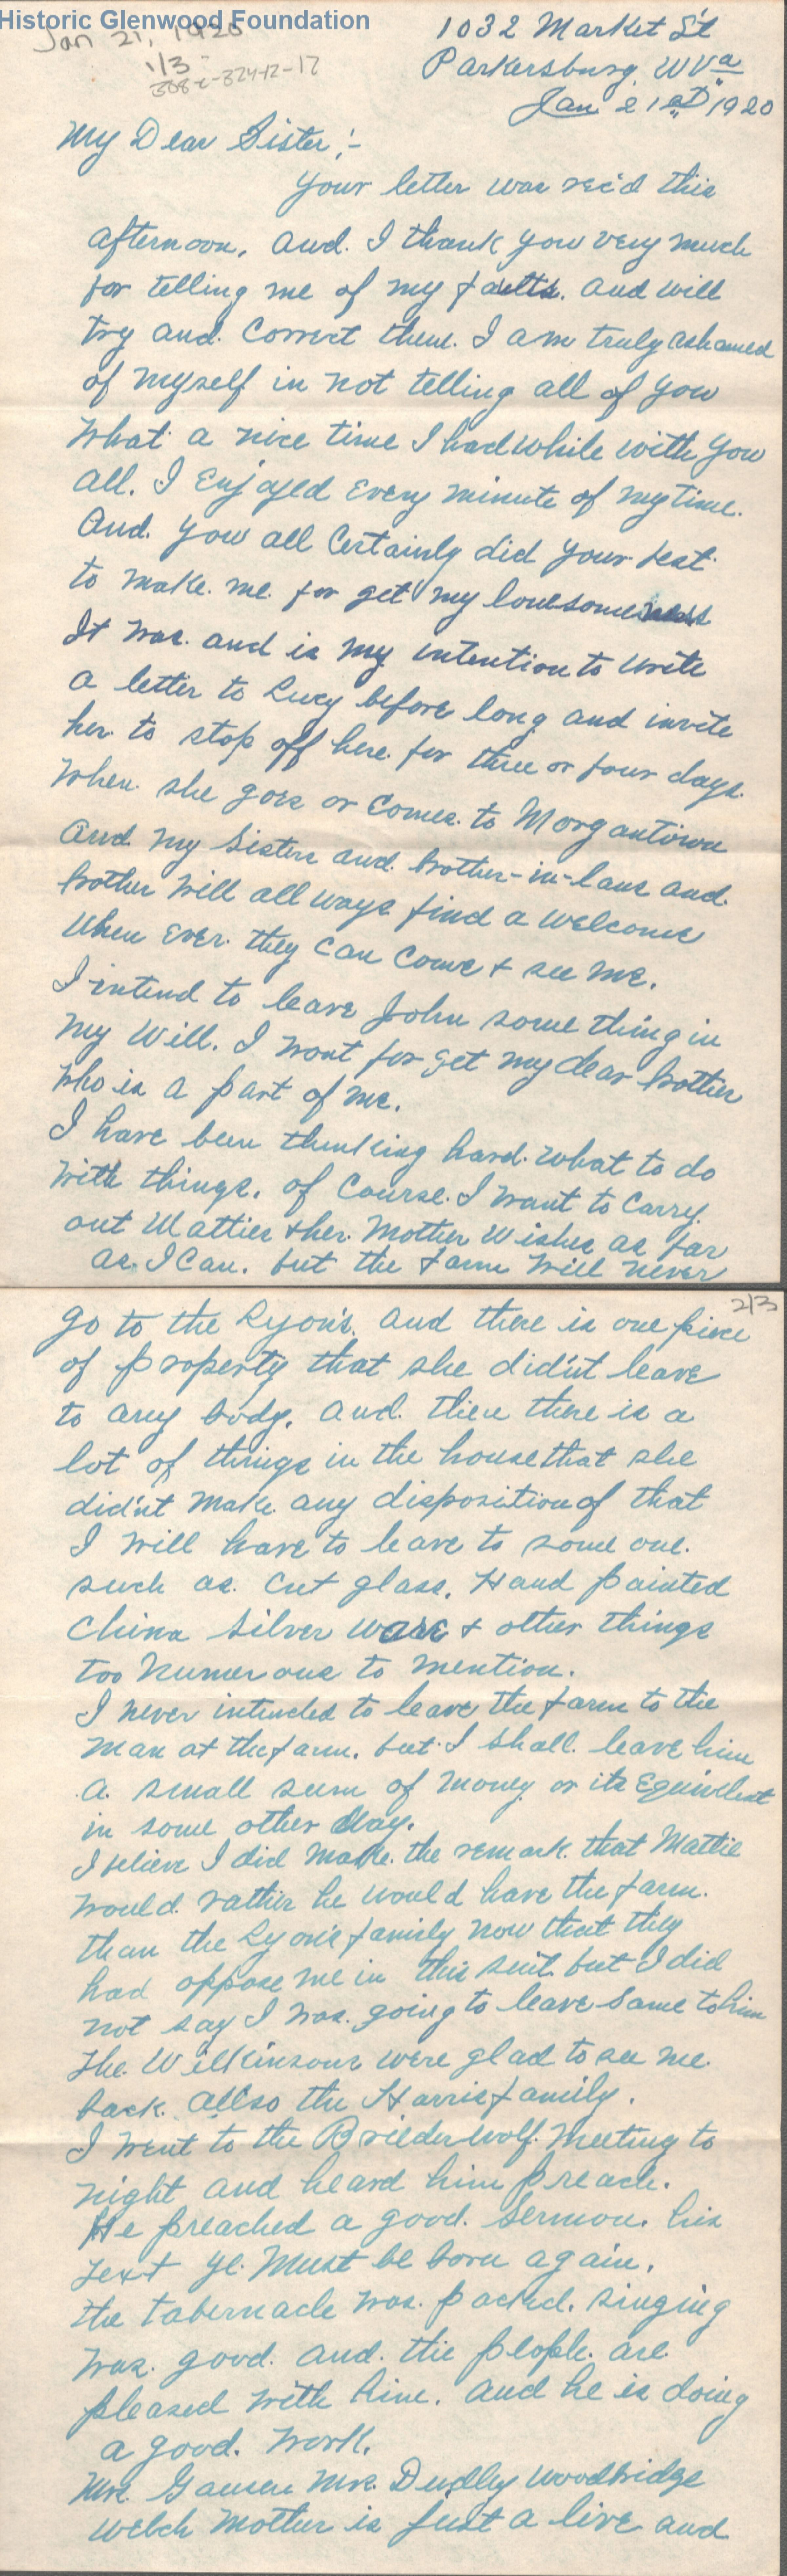 Historic Glenwood Foundation
Jan 21, 1920
1/3
1032 Market St
Parkersburg, WVa
Jan 21st, 1920
My Dear Sister:-
Your letter was rec'd this
afternoon. and. I thank you very much
for telling me of my faults. and will
try and. Correct them. I am truly ashamed
of myself in not telling all of you
What a nice time I had while with you
all. I Enjoyed Every minute of my time.
And. you all Certainly did your best
to make. me for get my lonesomeness
It was. and is my intention to write
a letter to Lucy before long and invite
her. to stop off here. for three or four days.
When. she goes or Comes. to Morgantown
And my Sisters and. brother-in-laws and.
brother Will all ways find a Welcome
When Ever. they Can Come + see me.
I intend to leave John some thing in
my Will. I wont for get my dear brother
Who is a part of me.
I have been thinking hard. What to do
With things. of Course. I want to Carry.
out Matties + her. Mother Wishes as far
as. I Can. but the farm Will never
2/3
go to the Lyon's. and there is one piece
of property that she did'nt leave
to any body. and. then there is a
lot of things in the house that she
did'nt make. any disposition of that
I Will have to leave to some one.
such as. Cut glass. Hand painted
China Silver Ware + other things
too Numerous to mention.
I never intended to leave the farm to the
man at the farm. but I shall. leave him
a. small sum of money or its Equivlent
in some other Way.
I believe I did make. the remark. that Mattie
Would. rather he would have the farm.
than the Lyon's family now that they
had oppose me in this suit but I did
not say I was. going to leave same to him
The. Wilkinsons were glad to see me.
back. allso the Harris family.
I went to the Briederwolf. Meeting to
night and heard him preach.
He preached a good. Sermon. his
text ye. Must be born again.
the tabernacle was. packed. singing
Was. good. and. the people. are.
pleased With him. and he is doing
a good. Work.
Mrs. Mrs. Dudley Woodbridge
Welch Mother is just a live and